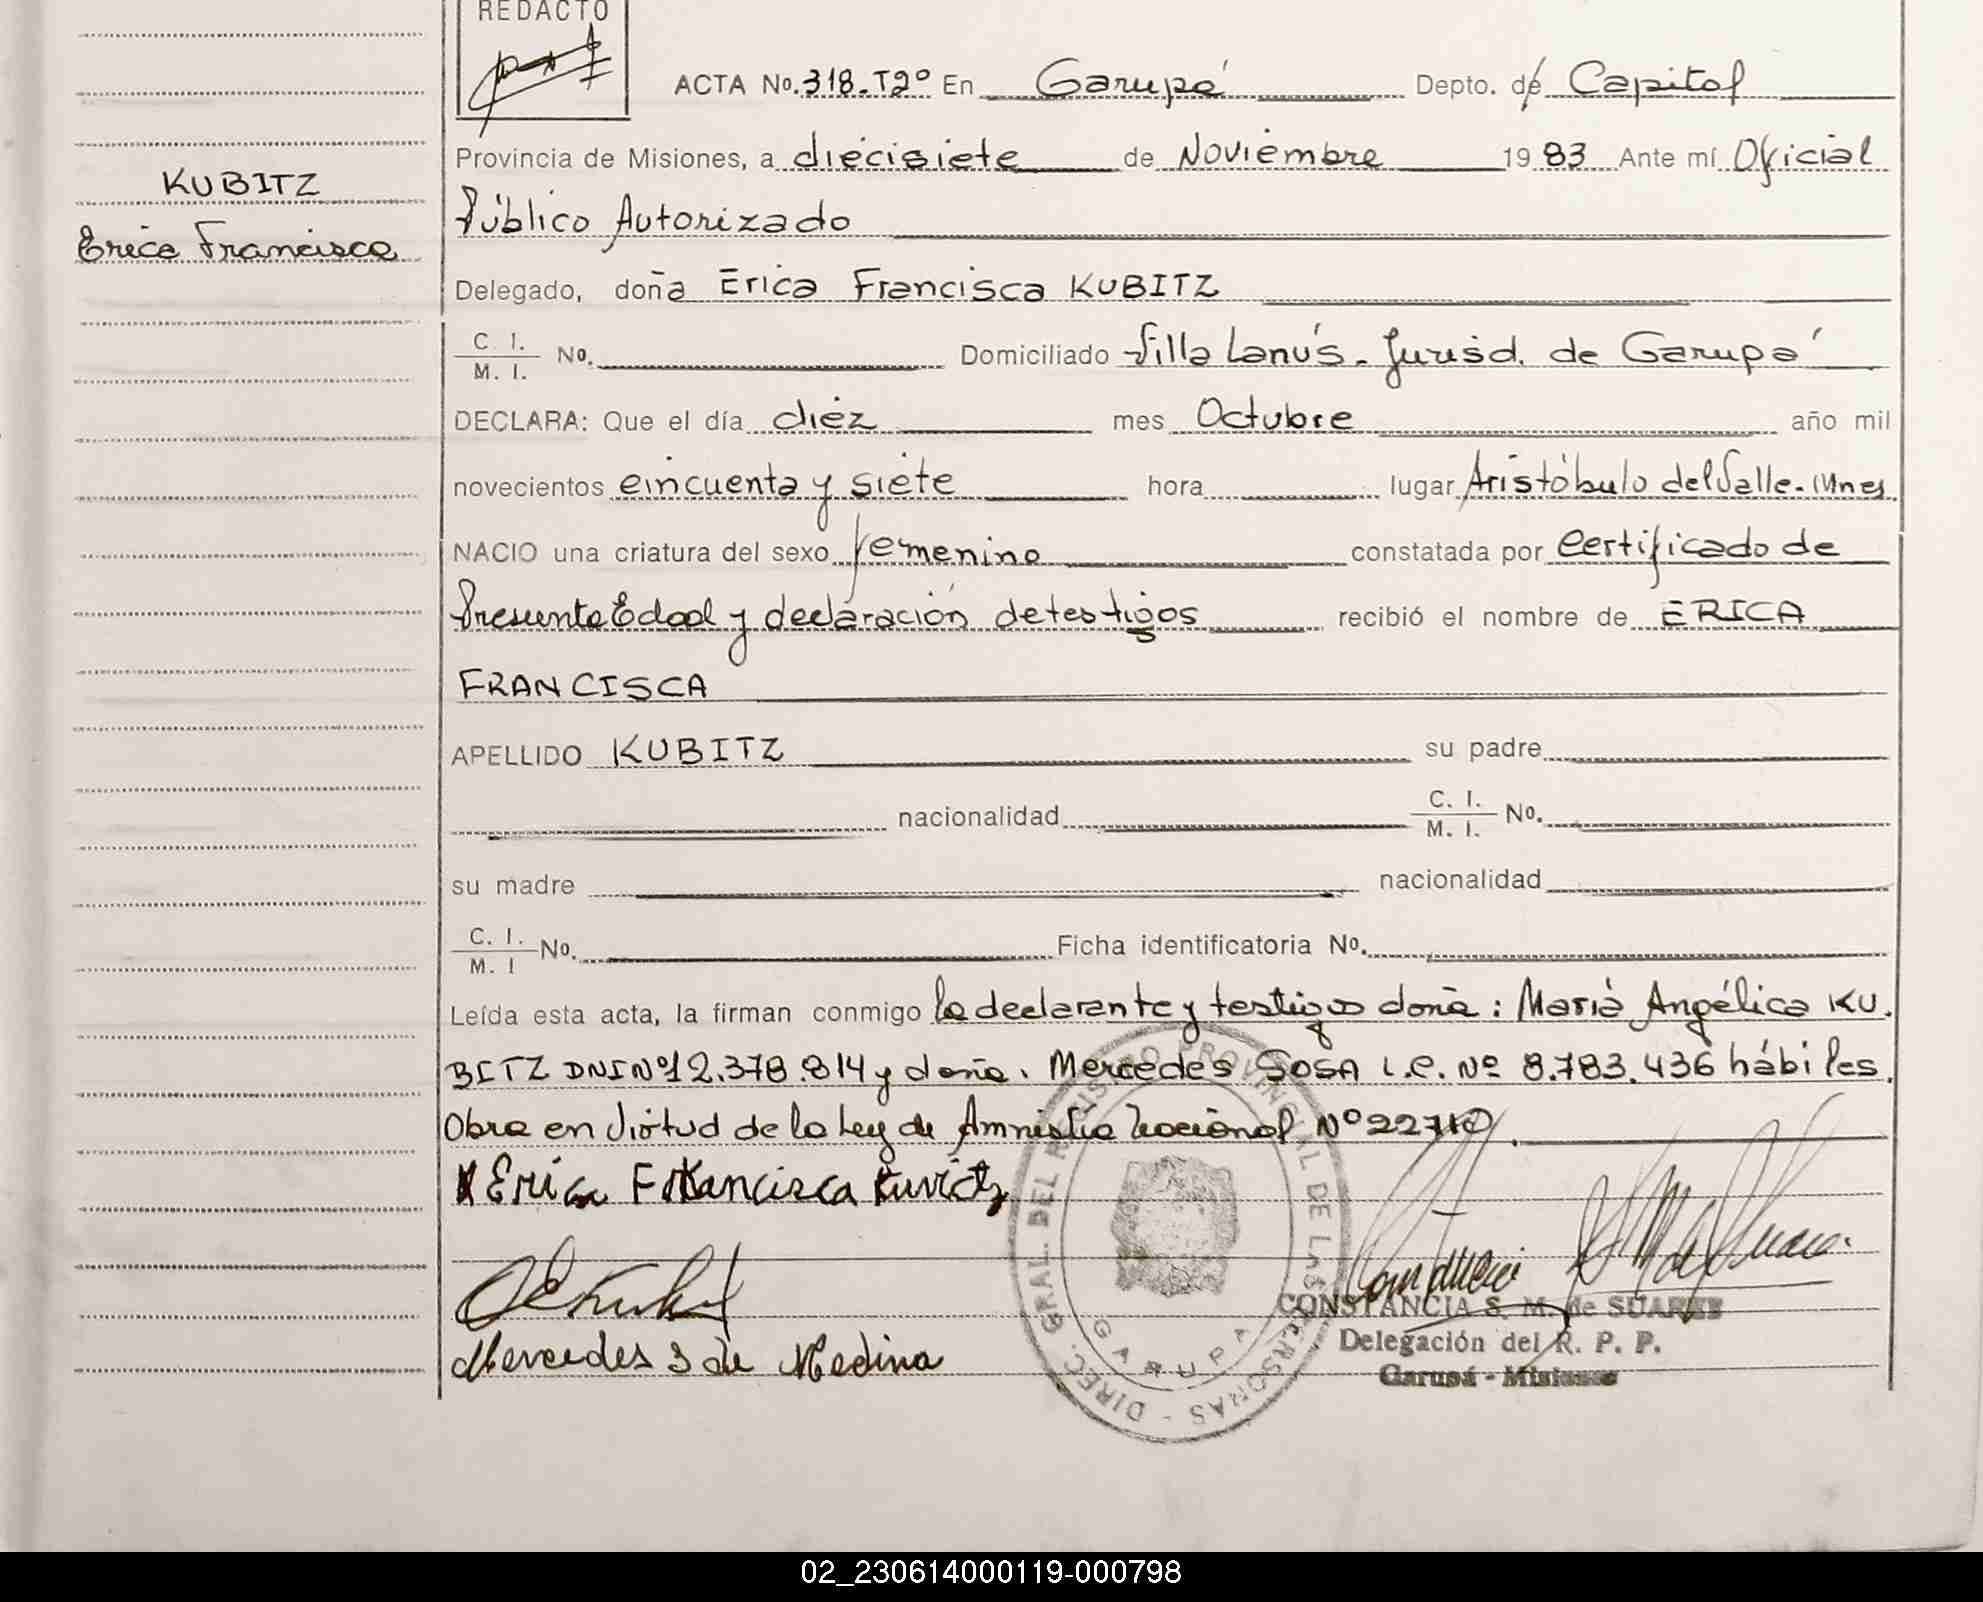 REDACTO
ACTA No. 318.T2º En Garupá Depto. de Capital
Provincia de Misiones, a diecisiete de Noviembre 1983 Ante mí Oficial
KUBITZ
Público Autorizado
Erica Francisca
Delegado, doña Erica Francisca KUBITZ
C. I. / M. I. No. Domiciliado Villa Lanús. Jurisd. de Garupá
DECLARA: Que el día diez mes Octubre año mil
novecientos cincuenta y siete hora lugar Aristóbulo del Valle. Mnes.
NACIO una criatura del sexo femenino constatada por Certificado de
Presunta Edad y declaración de testigos recibió el nombre de ERICA
FRANCISCA
APELLIDO KUBITZ su padre
nacionalidad C. I. / M. I. No.
su madre nacionalidad
C. I. / M. I No. Ficha identificatoria No.
Leída esta acta, la firman conmigo la declarante y testigos doña: María Angélica KU.
BITZ DNI Nº 12.378.814 y doña. Mercedes SOSA L.C. Nº 8.783.436 hábiles.
Obra en virtud de la Ley de Amnistía Nacional Nº 22710.
X Erica Francisca Kuvitz
Mercedes S de Medina
DIREC. GRAL. DEL REGISTRO PROVINCIAL DE LAS PERSONAS -
GARUPA
CONSTANCIA S. M. de SUAREZ
Delegación del R. P. P.
Garupá - Misiones
02_230614000119-000798